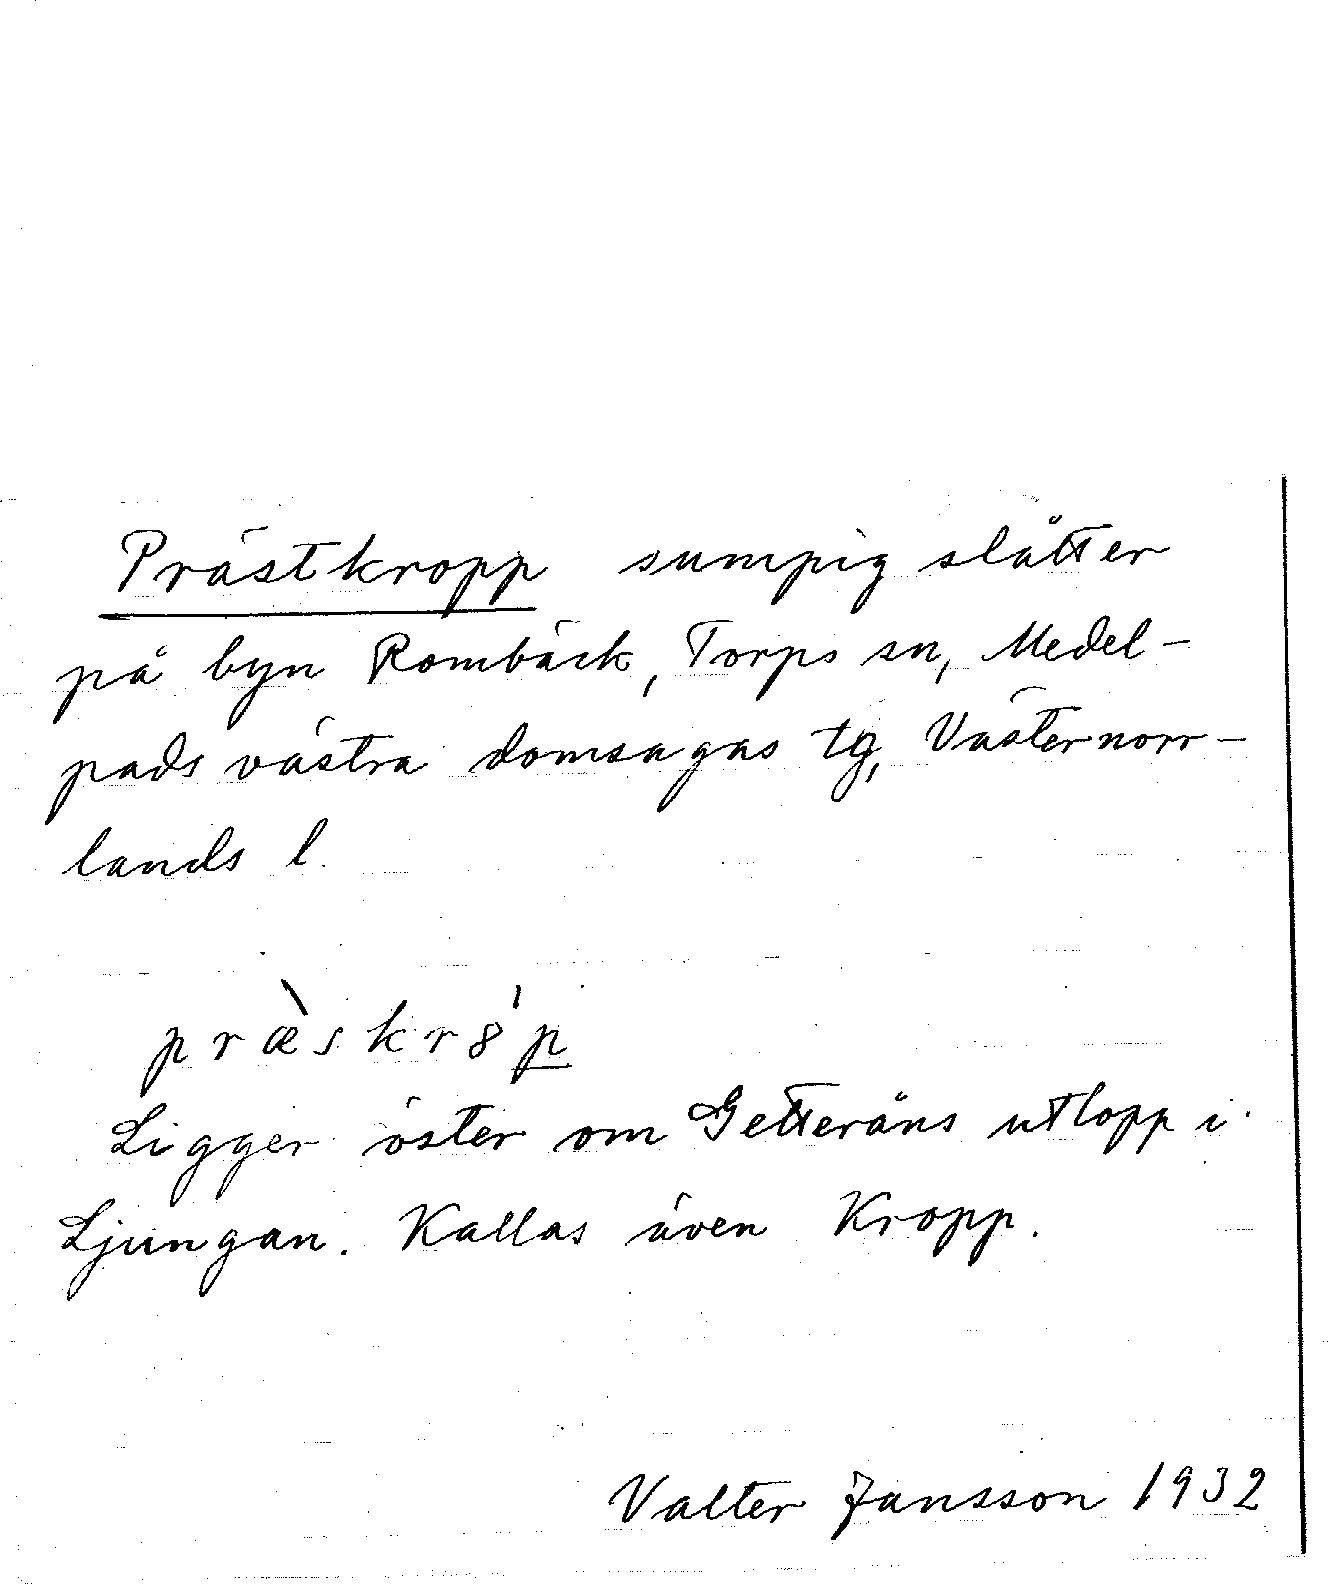 Prästkropp sumpig slåtter
på byn Rombäck, Torps sn, Medel-
pads västra domsagas tg, Västernorr-
lands l.
præ̀skr8́p̲
Ligger öster om Getteråns utlopp i
Ljungan. Kallas även Kropp.
Valter Jansson 1932